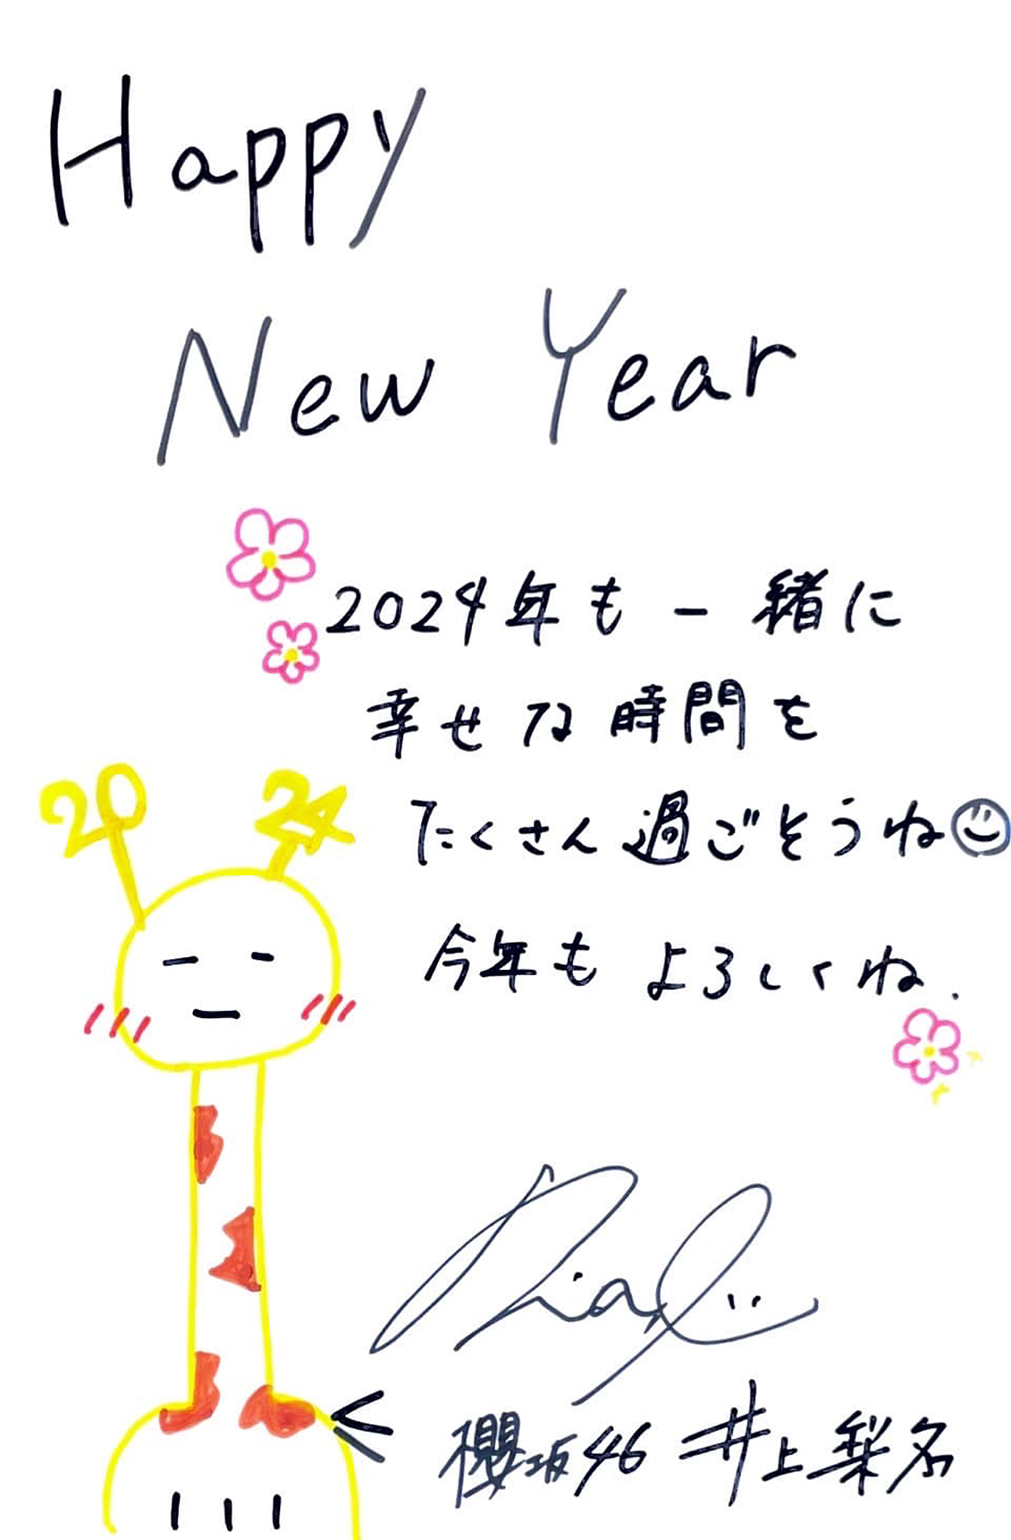 Happy
New Year
2024年も一緒に
幸せな時間を
たくさん過ごそうね
今年もよろしくね.
20 24
Rina
櫻坂46 井上梨名